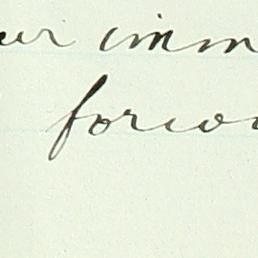 ur imm
forwa